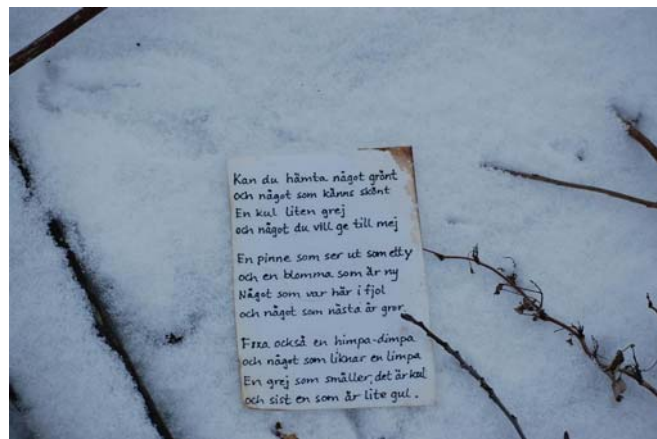 Kan du hämta något grönt
och något som känns skönt
En kul liten grej
och något du vill ge till mej
En pinne som ser ut som ett y
och en blomma som är ny
Något som var här i fjol
och något som nästa år gror.
Fixa också en himpa-dimpa
och något som liknar en limpa
En grej som smäller, det är kul
och sist en som är lite gul.